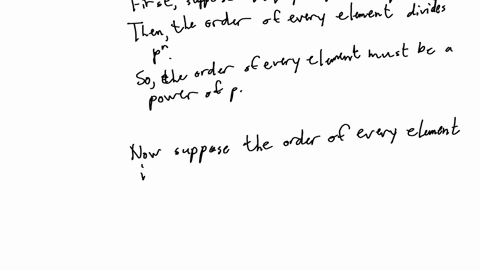 First, suppose
Then, the order of every element divides
pⁿ.
So, the order of every element must be a
power of p.
Now suppose the order of every element
i